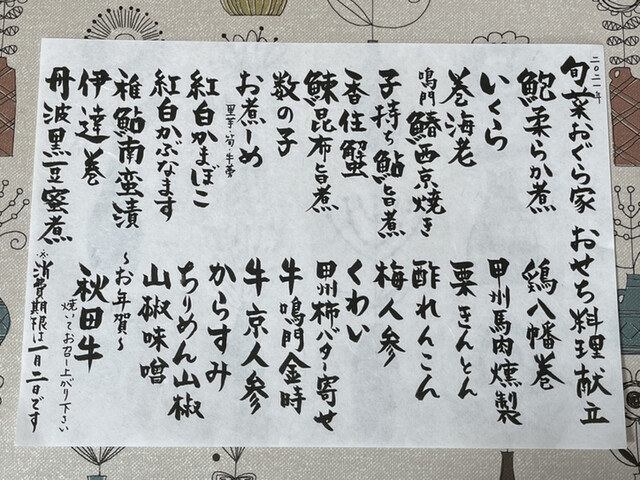 二〇二一年
旬菜おぐら家 おせち料理献立
鮑柔らか煮
いくら
巻海老
鳴門鰆西京焼き
子持ち鮎旨煮
香住蟹
鰊昆布旨煮
数の子
お煮〆め
里芋・筍・牛蒡
紅白かまぼこ
紅白かぶなます
稚鮎南蛮漬
伊達巻
丹波黒豆蜜煮
鶏八幡巻
甲州馬肉燻製
栗きんとん
酢れんこん
梅人参
くわい
甲州柿バター寄せ
牛鳴門金時
牛京人参
からすみ
ちりめん山椒
山椒味噌
〜お年賀〜
秋田牛
焼いてお召し上がり下さい
※消費期限は一月二日です